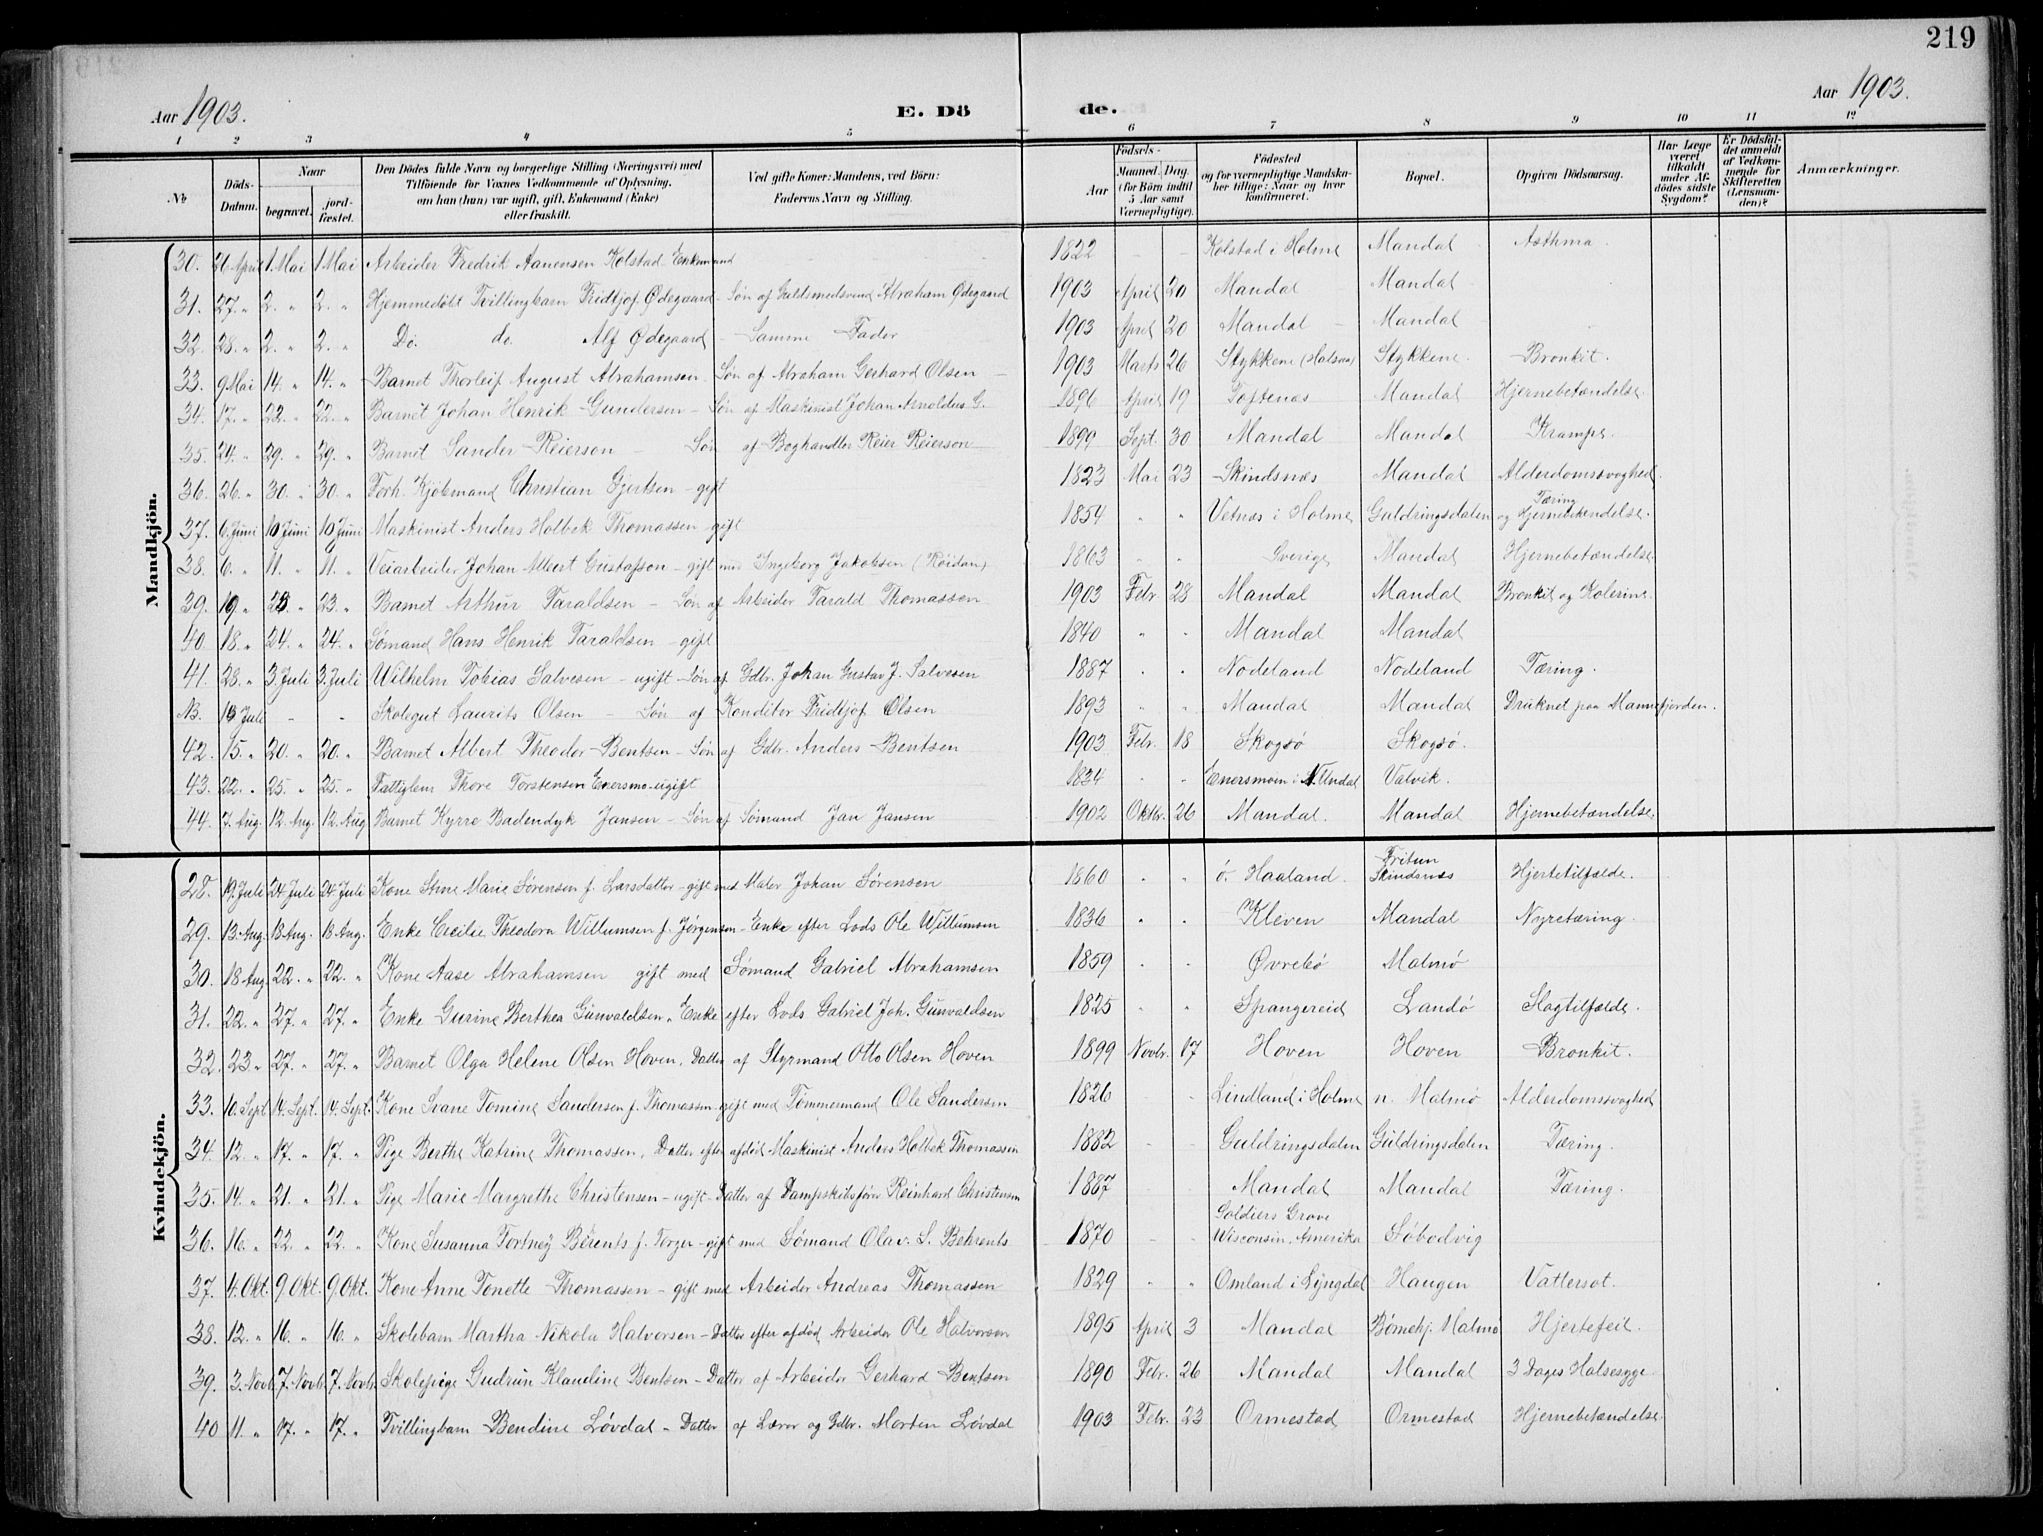 219
Aar 1903. E. Dö de. Aar 1903.
1 2 3 4 5 6 7 8 9 10 11 12
№ Döds-Datum. Naar begravet. jord-fæstet. Den Dödes fulde Navn og borgerlige Stilling (Næringsvei) med Tilföiende for Voxnes Vedkommende af Oplysning, om han (hun) var ugift, gift, Enkemand (Enke) eller fraskilt. Ved gifte Koner: Mandens, ved Börn: Faderens Navn og Stilling. Födsels- Aar Maaned. Dag. (for Börn indtil 5 Aar samt Værnepligtige). Födested og for værnepligtige Mandskaber tillige: Naar og hvor konfirmeret. Bopæl. Opgiven Dödsaarsag. Har Læge været tilkaldt under Afdödes sidste Sygdom? Er Dödsfaldet anmeldt af Vedkommende for Skifteretten (Lensmanden)? Anmærkninger.
Mandkjön.
30. 26 April 1 Mai 1 Mai Arbeider Fredrik Aanensen Kolstad Enkemand 1822 - - Kolstad i Holme Mandal Asthma
31. 27. " 2. " 2. " Hjemmedöbt Tvillingbarn Fridtjof Ødegaard - Søn af Guldsmedsvend Abraham Ødegaard 1903 April 20 Mandal Mandal
32. 28. " 2. " 2. " Do. do. Alf Ødegaard - Samme Fader 1903 April 20 Mandal Mandal
33. 9 Mai 14. " 14. " Barnet Thorleif August Abrahamsen Søn af Abraham Gerhard Olsen 1903 Marts 26 Stykkene (Halsaa) Stykkene. Bronkit.
34. 17. " 22. " 22. " Barnet Johan Henrik Gundersen - Søn af Maskinist Johan Arnoldus G. 1896 April 19 Toftenes Mandal Hjernebetændelse.
35. 24. " 29. " 29. " Barnet Sander Reierson - Søn af Boghandler Reier Reierson 1899 Sept. 30 Mandal Mandal Krampe.
36. 26. " 30. " 30. " Forh. Kjöbmand Christian Gjertsen - gift 1823 Mai 23 Skindsnæs Mandal Alderdomssvaghed.
37. 6. Juni 10 Juni 10 Juni Maskinist Anders Holbek Thomassen gift 1854 " " Vetnes i Holme Guldringsdalen Tæring og Hjernebetændelse.
38. 6. " 11. " 11. " Veiarbeider Johan Albert Gustafson - gift med Ingeborg Jakobsen (Röidan) 1863 " " Sverige Mandal Hjernebetændelse
39. 19 " 23. " 23. " Barnet Arthur Taraldsen - Søn af Arbeider Tarald Thomassen 1903 Febr 28 Mandal Mandal Bronkit og Kolerine.
40 18. " 24. " 24. " Sømand Hans Henrik Taraldsen - gift 1840 " " Mandal Mandal
41. 28. " 3 Juli 3 Juli Wilhelm Tobias Salvesen - ugift - Søn af Gdbr. Johan Gustav J. Salvesen 1887 " " Nodeland Nodeland Tæring.
NB. 13 Juli - - Skolegut Laurits Olsen - Søn af Konditor Fridtjof Olsen 1893 " " Mandal Mandal Druknet paa Mannefjorden.
42. 15. " 20. " 20. " Barnet Albert Theodor Bentsen - Søn af Gdbr. Anders Bentsen 1903 Febr. 18 Skogsø Skogsø.
43. 22. " 25. " 25. " Fattiglem Thore Torstensen Enersmo - ugift 1834 " " Enersmoen i N. Undal Valvik.
44. 7. Aug. 12. Aug. 12. Aug Barnet Kyrre Badendyk Jansen - Søn af Sømand Jan Jansen 1902 Oktbr. 26 Mandal. Mandal Hjernebetændelse.
Kvindekjön.
28. 19. Juli 24 Juli 24 Juli Kone Stine Marie Sørensen f. Larsdatter - gift med Maler Johan Sørensen 1860 " " ö. Haaland. Fritun Skindsnæs Hjertetilfælde.
29. 13. Aug. 18 Aug. 18 Aug. Enke Cecilie Theodora Willumsen f. Jørgensen - Enke efter Lods Ole Willumsen 1836 " " Kleven Mandal Nyretæring.
30. 18 Aug. 22. " 22. " Kone Aase Abrahamsen gift med Sømand Gabriel Abrahamsen 1859 " " Øvrebø Malmø
31. 22. " 27. " 27. " Enke Gurine Berthea Gunvaldsen. Enke efter Lods Gabriel Joh. Gunvaldsen 1825 " " Spangereid Landø Slagtilfælde.
32. 23. " 27. " 27. " Barnet Olga Helene Olsen Hoven. Datter af Styrmand Otto Olsen Hoven 1899 Novbr. 17 Hoven Hoven Bronkit.
33. 10. Sept. 14. Sept. 14. Sept. Kone Svane Tomine Sandersen f. Thomassen gift med Tømmermand Ole Sandersen 1826 " Lindland i Holme n. Malmø Alderdomssvaghed
34. 12. " 17. " 17. " Pige Berthe Katrine Thomassen. Datter efter afdöd Maskinist Anders Holbek Thomassen 1882 - - Guldringsdalen Guldringsdalen Tæring.
35. 14. " 21. " 21. " Pige Marie Margrethe Christensen - ugift - Datter af Dampskibsfører Reinhard Christensen 1887 - - Mandal Mandal Tæring.
36. 16. " 22. " 22. " Kone Susanna Fortney Bérents f. Torger - gift med Sømand Olav. S. Behrents 1870 - - Soldiers Grove Wisconsin, Amerika Søbodvig
37. 4. Okt. 9. Okt. 9. Okt. Kone Anne Tonette Thomassen - gift med Arbeider Andreas Thomassen 1829 " " Omland i Lyngdal Haugen Vattersot.
38. 12. " 16. " 16. " Skolebarn Martha Nikolu Halvorsen - Datter efter afdöd Arbeider Ole Halvorsen 1895 April 3 Mandal Børnehj. Malmø Hjertefeil.
39. 3. Novb. 7. Novbr. 7. Novbr. Skolepige Gudrun Klaudine Bentsen - Datter af Arbeider Gerhard Bentsen 1890 Febr. 26 Mandal Mandal 3 Dages Halsesyge.
40 11. " 17. " 17. " Tvillingbarn Bendine Løvdal - Datter af Lærer og Gdbr. Morten Løvdal 1903 Febr. 23 Ormestad Ormestad Hjernebetændelse.